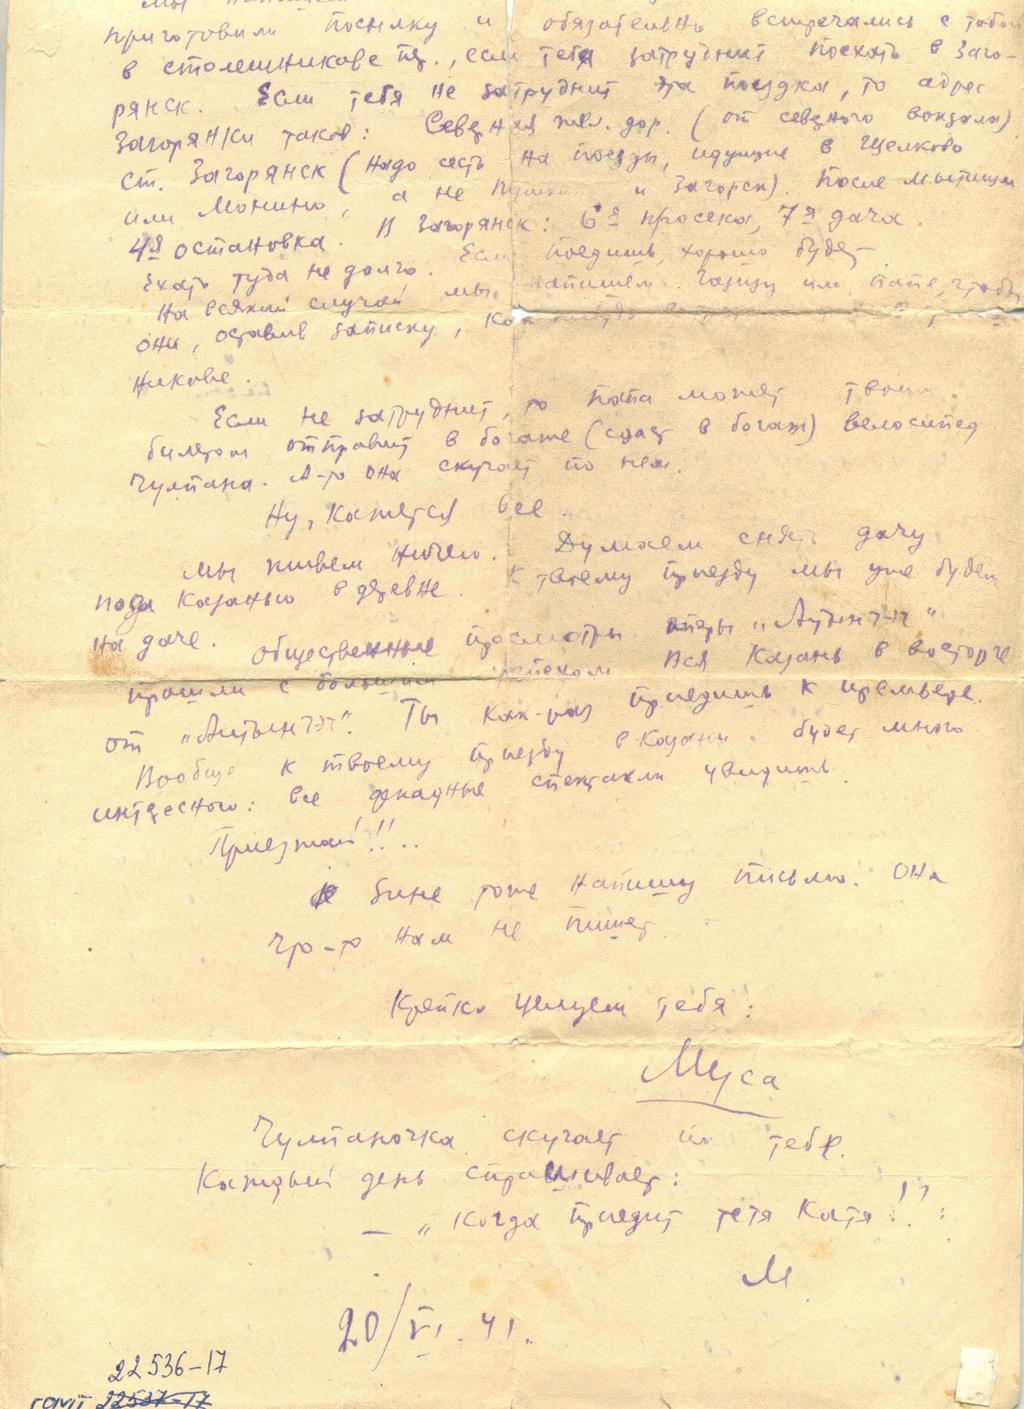 Мы напишем
приготовили посылку и обязательно встречались с тобой
в столешникове пер., если тебя затруднит поехать в Заго-
рянск. Если тебя не затруднит эта поездка, то адрес
Загорянки таков: Северная жел. дор. (от северного вокзала)
ст. Загорянск (надо сесть на поезды, идущие в Щелково
или Монино, а не и Загорск). После Мытищи
4я остановка. В Загорянск: 6я просека, 7я дача.
Ехать туда не долго. Если поедишь, хорошо будет
На всякий случай мы напишем или папе, чтобы
они, оставив записку,
никове.
Если не затруднит, то папа может твоим
билетом отправит в богаже (сдаст в богаж) велосипед
Чулпана. А-то она скучает по нем.
Ну, кажется все.
Мы живем ничего. Думаем снять дачу
под Казанью в деревне. К твоему приезду мы уже будем
на даче. Общественные просмотры оперы „Алтынчэч"
прошли с большим успехом Вся Казань в восторге
от „Алтынчэч". Ты как-раз приедишь к премьере.
Вообще к твоему приезду в Казани будет много
интересного: все декадные спектакли увидишь.
Приезжай!!..
Зине тоже напишу письмо. Она
что-то нам не пишет.
Крепко целуем тебя:
Муса
Чулпаночка скучает по тебе.
Каждый день спрашивает:
— „Когда приедит тетя Катя!":
М
20/VI. 41.
22536-17
ГОМТ 22537-17